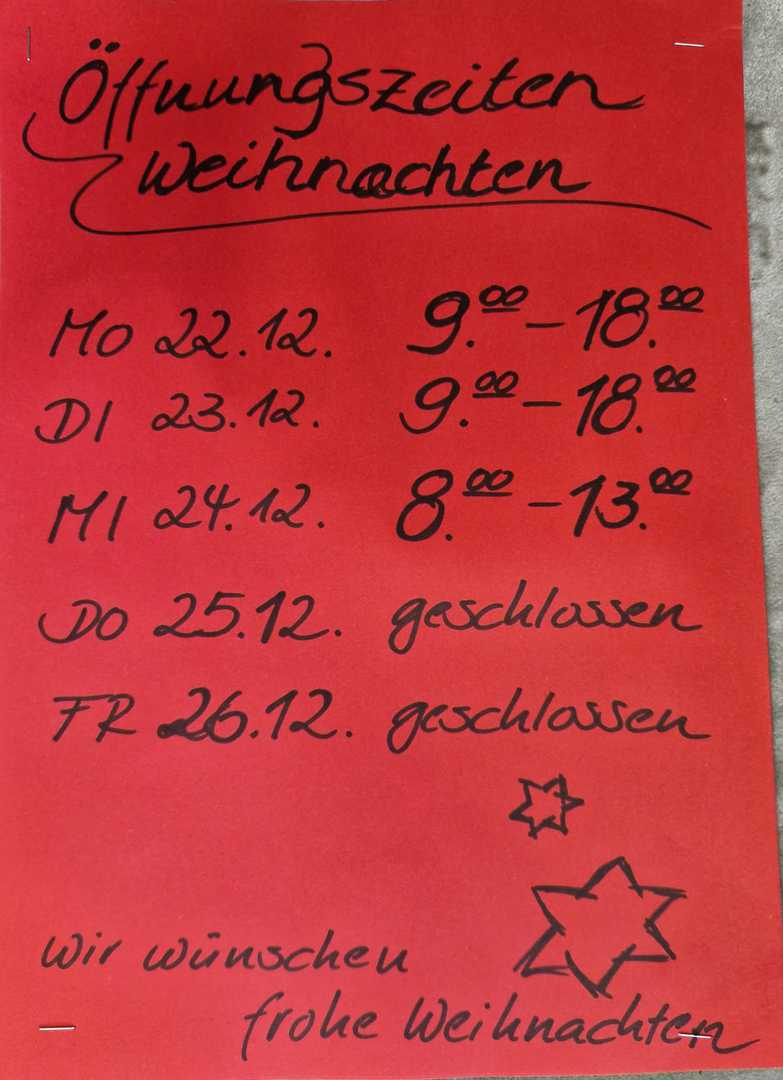 Öffnungszeiten
Weihnachten
MO 22.12. 9.00 - 18.00
DI 23.12. 9.00 - 18.00
MI 24.12. 8.00 - 13.00
DO 25.12. geschlossen
FR 26.12. geschlossen
Wir wünschen
frohe Weihnachten